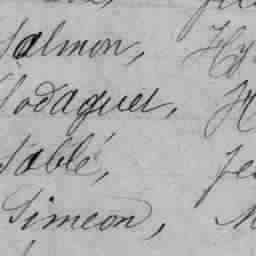 Salmon, Hy
Sodaquet, H
Sablé, Je
Simeon, M